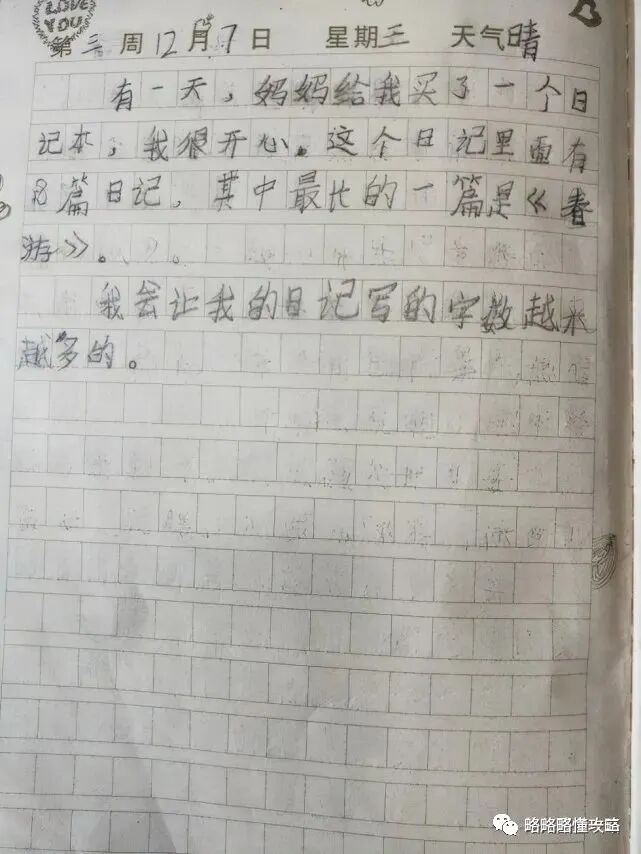 LOVE YOU
第三周12月7日 星期三 天气晴
有一天，妈妈给我买了一个日
记本，我很开心。这个日记里面有
8篇日记，其中最长的一篇是《春
游》。
我会让我的日记写的字数越来
越多的。
略略略懂攻略